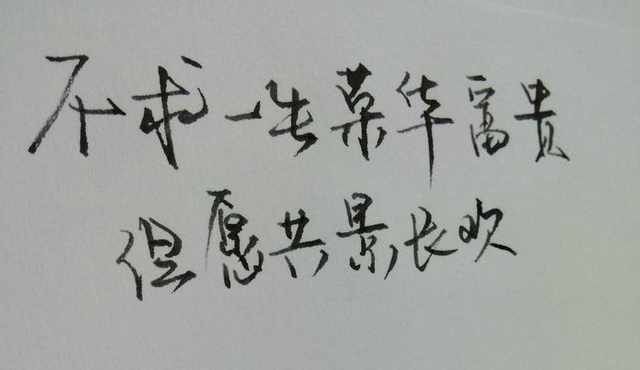 不求一生荣华富贵
但愿共景长欢